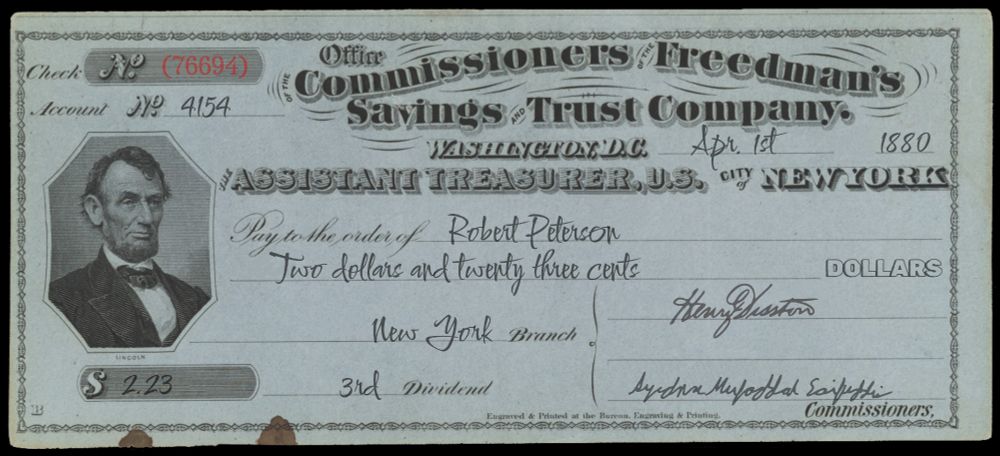 Check No. (76694)
Account No 4154
Office
OF THE Commissioners OF THE Freedman's
Savings AND Trust Company.
WASHINGTON, D.C. Apr. 1st 1880
THE ASSISTANT TREASURER, U.S. CITY of NEW YORK
Pay to the order of Robert Peterson
Two dollars and twenty three cents DOLLARS
Henry Disston
New York Branch
LINCOLN
$ 2.23
3rd Dividend
B
Engraved & Printed at the Bureau, Engraving & Printing.
Commissioners,